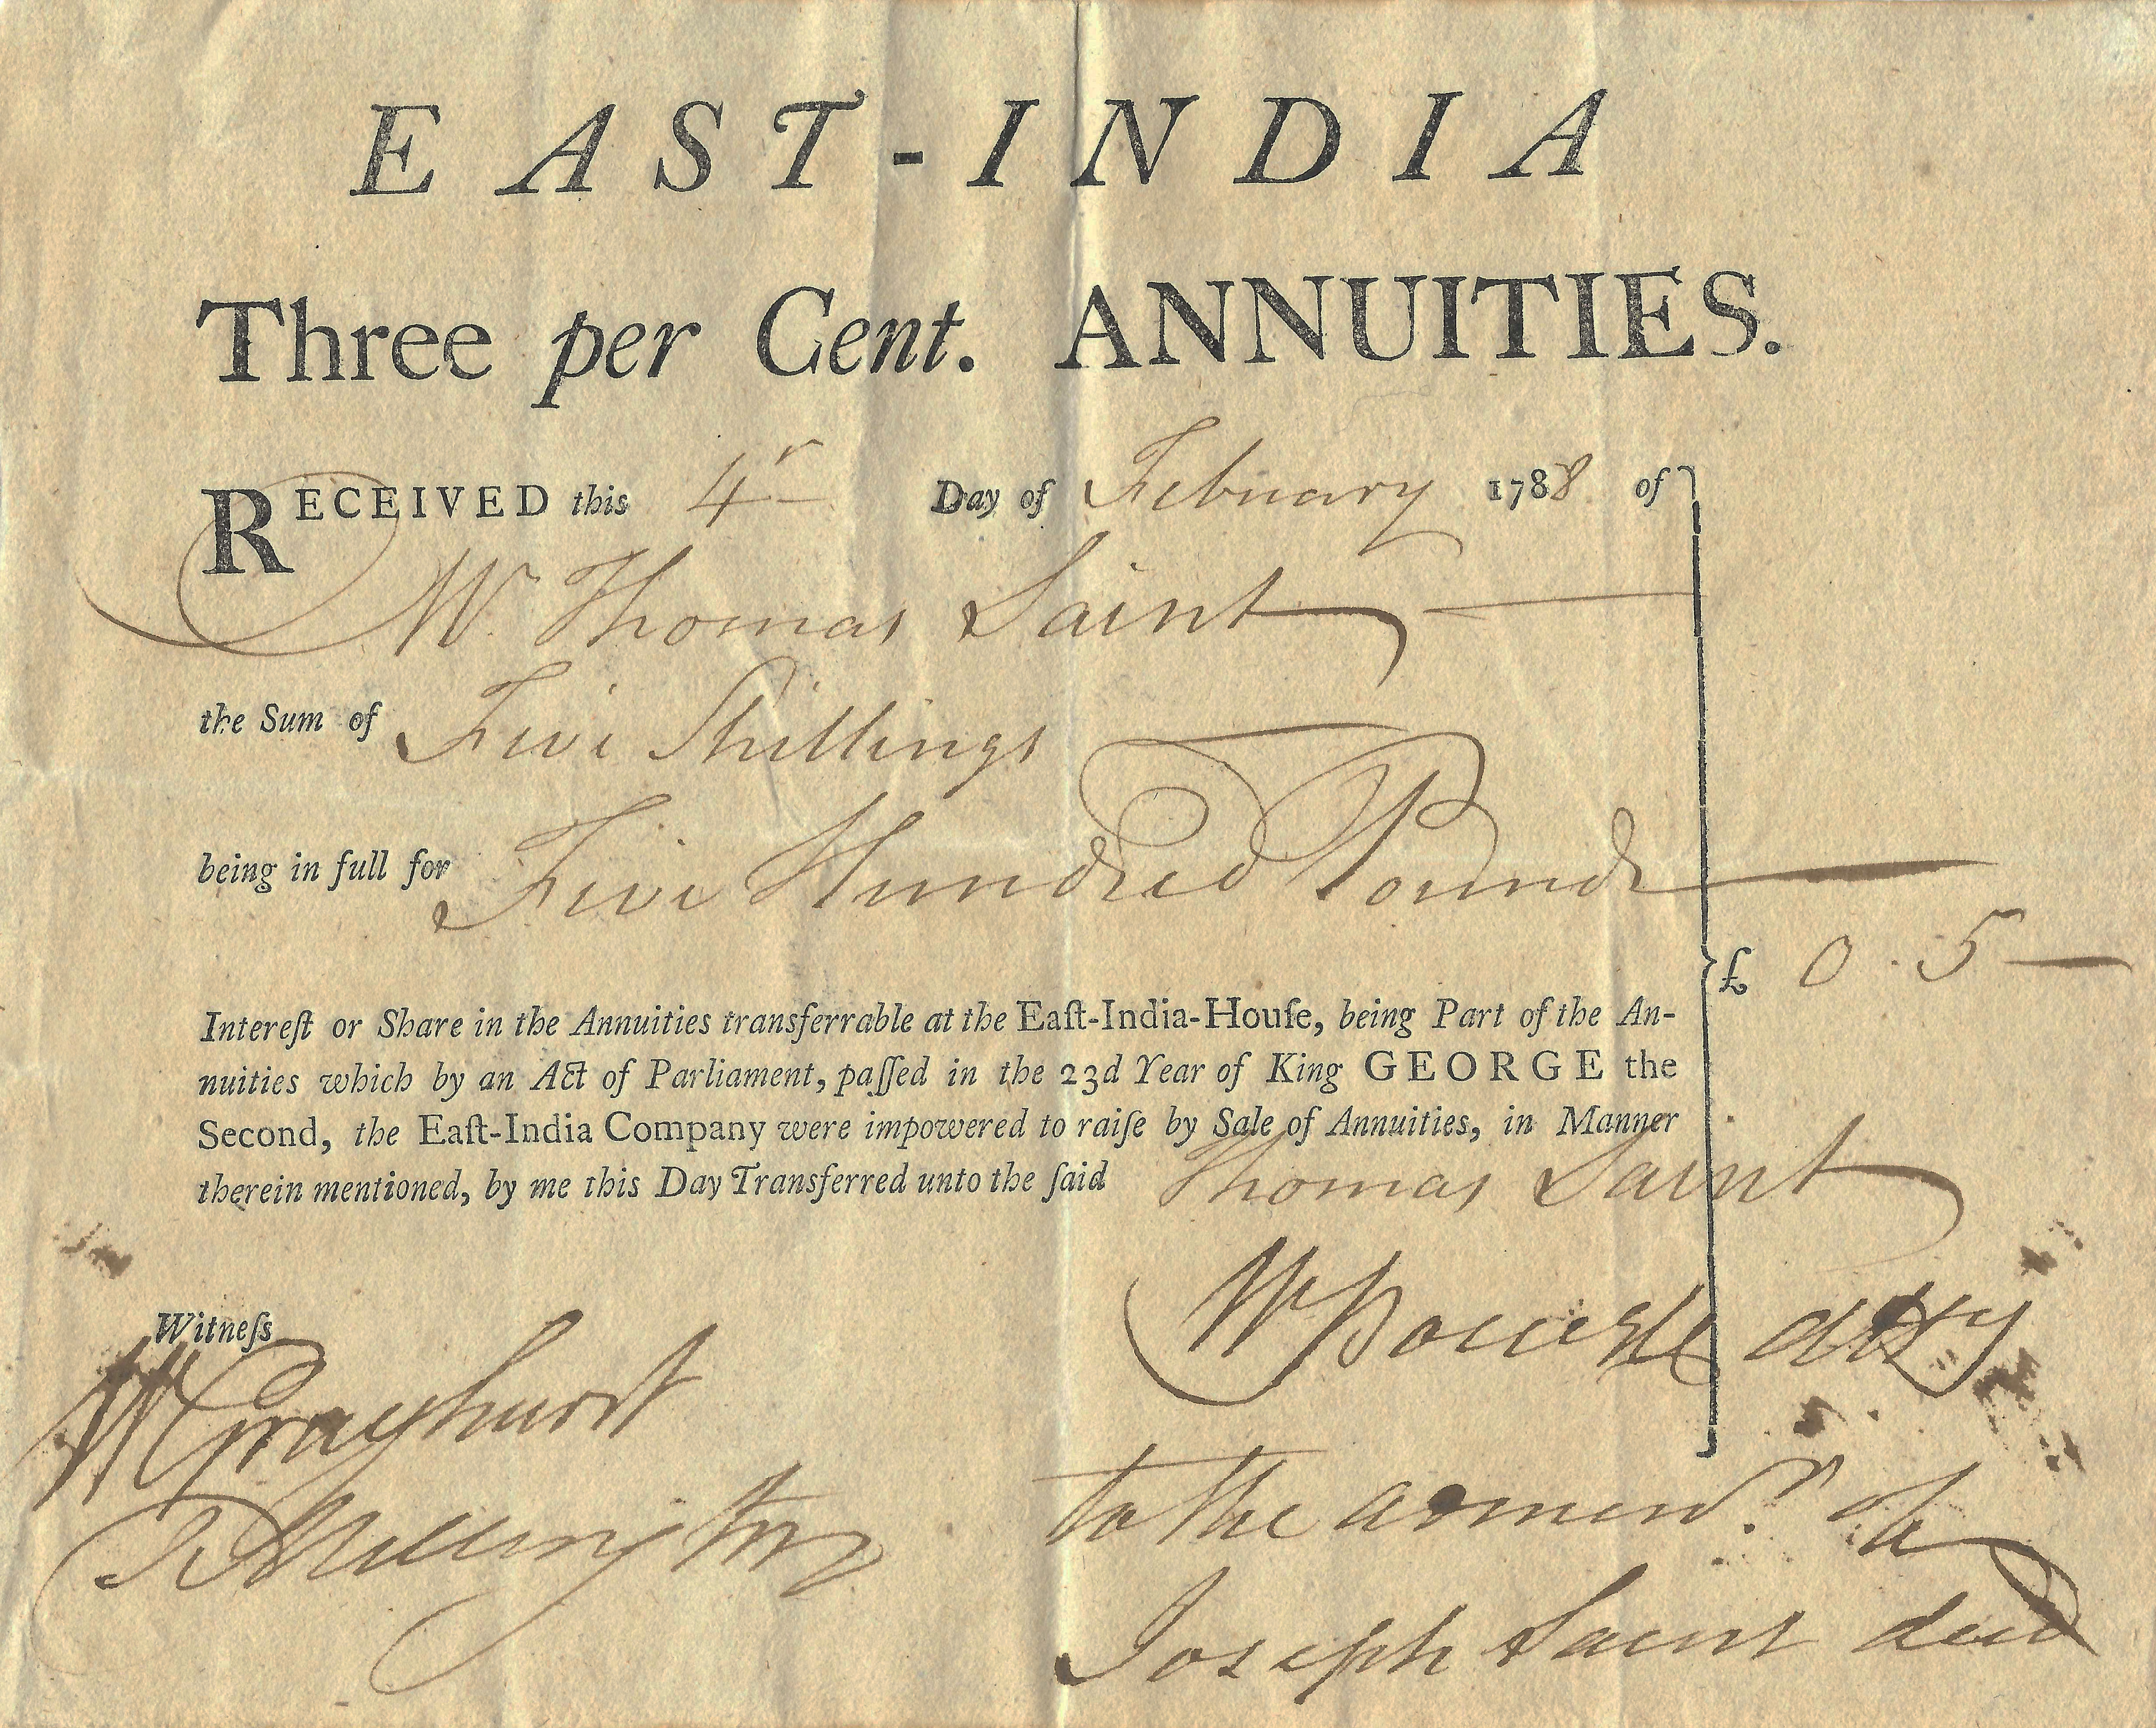 EAST-INDIA
Three per Cent. ANNUITIES.
RECEIVED this 4 Day of February 1788 of
Mr. Thomas Saint
the Sum of Five Shillings
being in full for Five Hundred Pounds
£ 0.5—
Intereſt or Share in the Annuities transferrable at the Eaſt-India-Houſe, being Part of the An-
nuities which by an Act of Parliament, paſſed in the 23d Year of King GEORGE the
Second, the Eaſt-India Company were impowered to raiſe by Sale of Annuities, in Manner
therein mentioned, by me this Day Transferred unto the ſaid Thomas Saint
Witneſs
W Grayhurst
atty
T Millington
to the of
Joseph Saint decd